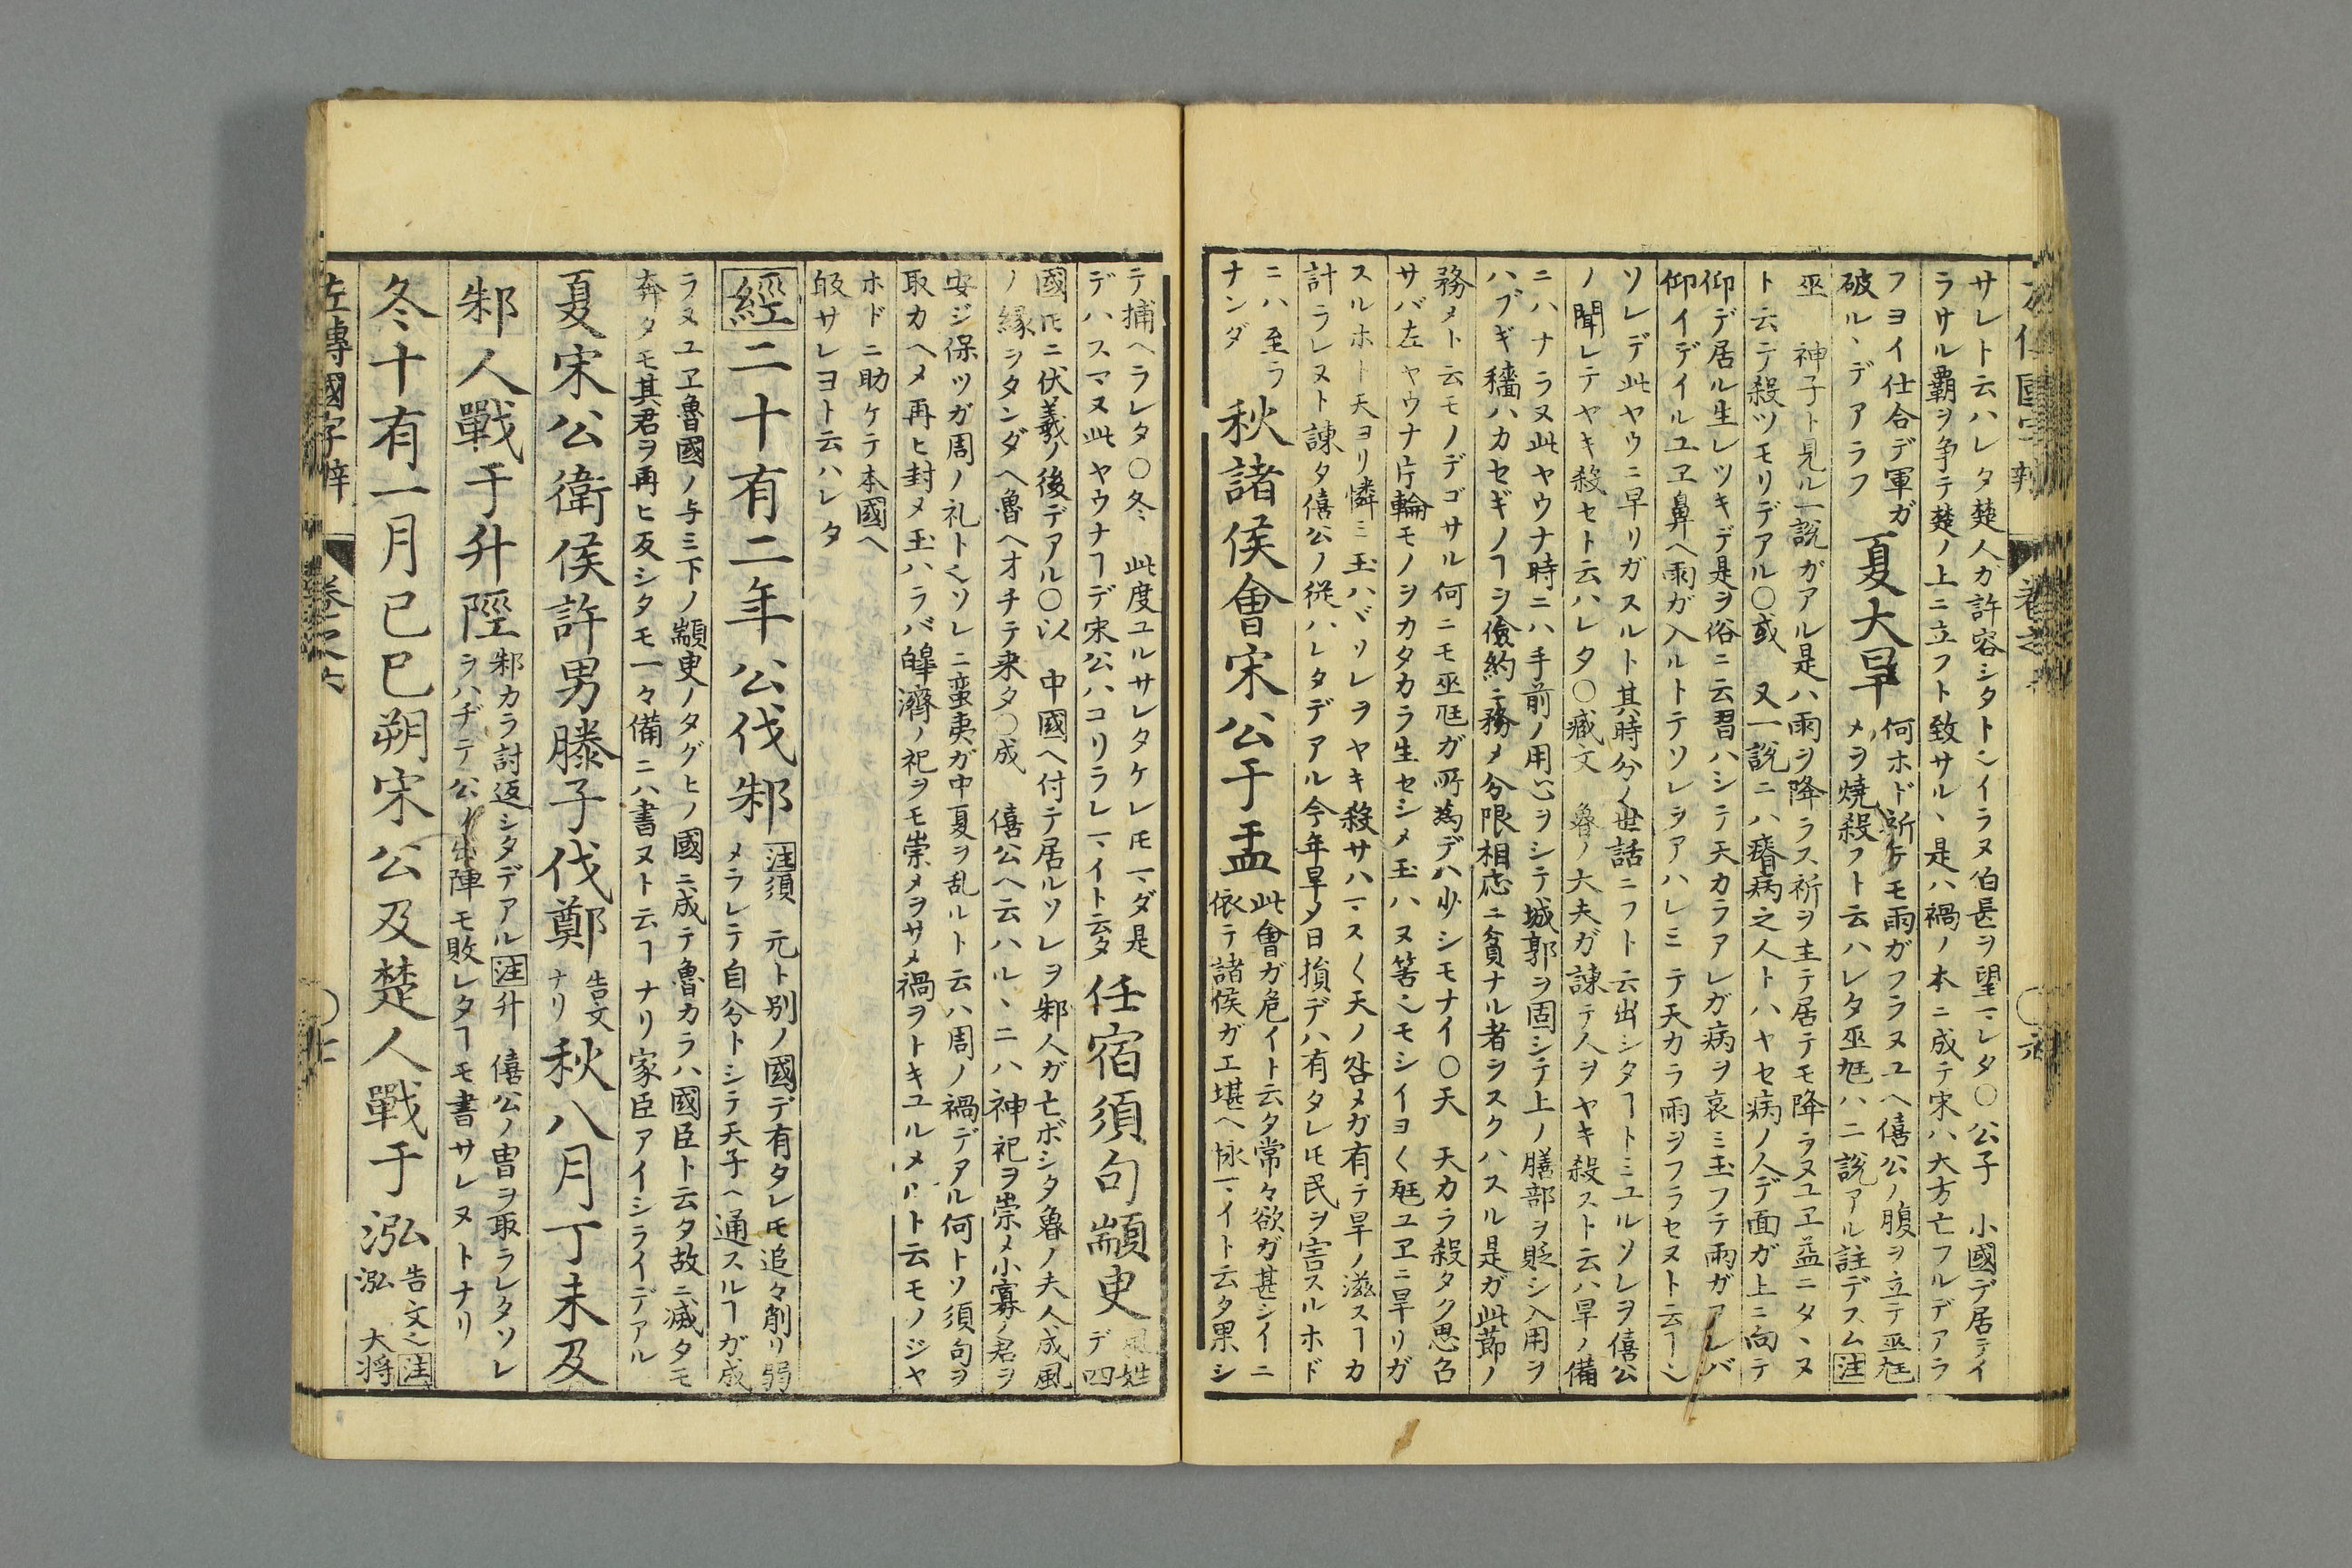 サレト云ハレタ楚人ガ許容シタトンイラヌ伯長ヲ望マレタ〇公子 小國デ居テイ
ラサル覇ヲ争テ楚ノ上ニ立フト致サル、是ハ禍ノ本ニ成テ宋ハ大方亡フルデアラ
フヨイ仕合デ軍ガ
破ル、デアラフ
夏大旱
何ホド祈テモ雨ガフラヌユヘ僖公ノ腹ヲ立テ巫尫
メヲ焼殺フト云ハレタ巫尫ハ二説アル註デスム注
巫 神子ト見ル一説ガアル是ハ雨ヲ降ラス祈ヲ主テ居テモ降ラヌユヱ益ニタヽヌ
ト云テ殺ツモリデアル〇或 又一説ニハ瘠病之人トハヤセ病ノ人デ面ガ上ニ向テ
仰デ居ル生レツキデ是ヲ俗ニ云習ハシテ天カラアレガ病ヲ哀ミ玉フテ雨ガアレバ
仰イデイルユヱ鼻ヘ雨ガ入ルトテソレヲアハレミテ天カラ雨ヲフラセヌト云ヿ
ソレデ此ヤウニ旱リガスルト其時分ノ世話ニフト云出シタヿトミユルソレヲ僖公
ノ聞レテヤキ殺セト云ハレタ〇臧文 魯ノ大夫ガ諫テ人ヲヤキ殺スト云ハ旱ノ備
ニハナラヌ此ヤウナ時ニハ手前ノ用心ヲシテ城郭ヲ固シテ上ノ膳部ヲ貶シ入用ヲ
ハブギ穡ハカセギノヿヲ儉約ニ務メ分限相応ニ貧ナル者ヲスクハスル是ガ此節ノ
務メト云モノデゴサル何ニモ巫尫ガ所為デハ少シモナイ〇天 天カラ殺タク思召
サバ左ヤウナ片輪モノヲカタカラ生セシメ玉ハヌ筈モシイヨ〱尫ユヱニ旱リガ
スルホト天ヨリ憐ミ玉ハバソレヲヤキ殺サハマス〱天ノ咎メガ有テ旱ノ滋スヿカ
計ラレヌト諫タ僖公ノ従ハレタデアル今年旱メ日損デハ有タレ𪜈民ヲ害スルホド
ニハ至ラ
ナンダ
秋諸侯會宋公于盂
此會ガ危イト云タ常々欲ガ甚シイニ
依テ諸侯ガエ堪ヘ
テ捕ヘラレタ〇冬 此度ユルサレタケレ𪜈マダ是
デハスマヌ此ヤウナヿデ宋公ハコリラレマイト云タ
任宿須句顓臾
風姓
デ四
國𪜈ニ伏羲ノ後デアル〇以 中國ヘ付テ居ルソレヲ邾人ガ亡ボシタ魯ノ夫人成風
ノ縁ヲタンダヘ魯ヘオチテ来タ〇成 僖公ヘ云ハル、ニハ神祀ヲ崇メ小寡ノ君ヲ
安ジ保ツガ周ノ礼トソレニ蛮夷ガ中夏ヲ乱ルト云ハ周ノ禍デアル何トソ須句ヲ
取カヘメ再ヒ封メ玉ハラバ皥濟ノ祀ヲモ崇メヲサメ禍ヲトキユルメト云モノジヤ
ホドニ助ケテ本國ヘ
皈サレヨト云ハレタ
經二十有二年公伐邾
注須 元ト別ノ國デ有タレ𪜈追々削リ弱
メラレテ自分トシテ天子ヘ通スルヿガ成
ラヌユヱ魯國ノ与ミ下ノ顓臾ノタグヒノ國ニ成テ魯カラハ國臣ト云タ故ニ滅タモ
奔タモ其君ヲ再ヒ反シタモ一々備ニハ書ヌト云ヿナリ家臣アイシライデアル
夏宋公衛侯許男滕子伐鄭
告文
ナリ
秋八月丁未及
邾人戰于升陘
邾カラ討返シタデアル注升 僖公ノ冑ヲ取ラレタソレ
ラハヂテ公ノ出陣モ敗レタヿモ書サレヌトナリ
冬十有一月己巳朔宋公及楚人戰于泓
告文注
泓 大将
左傳國字辯 卷之六